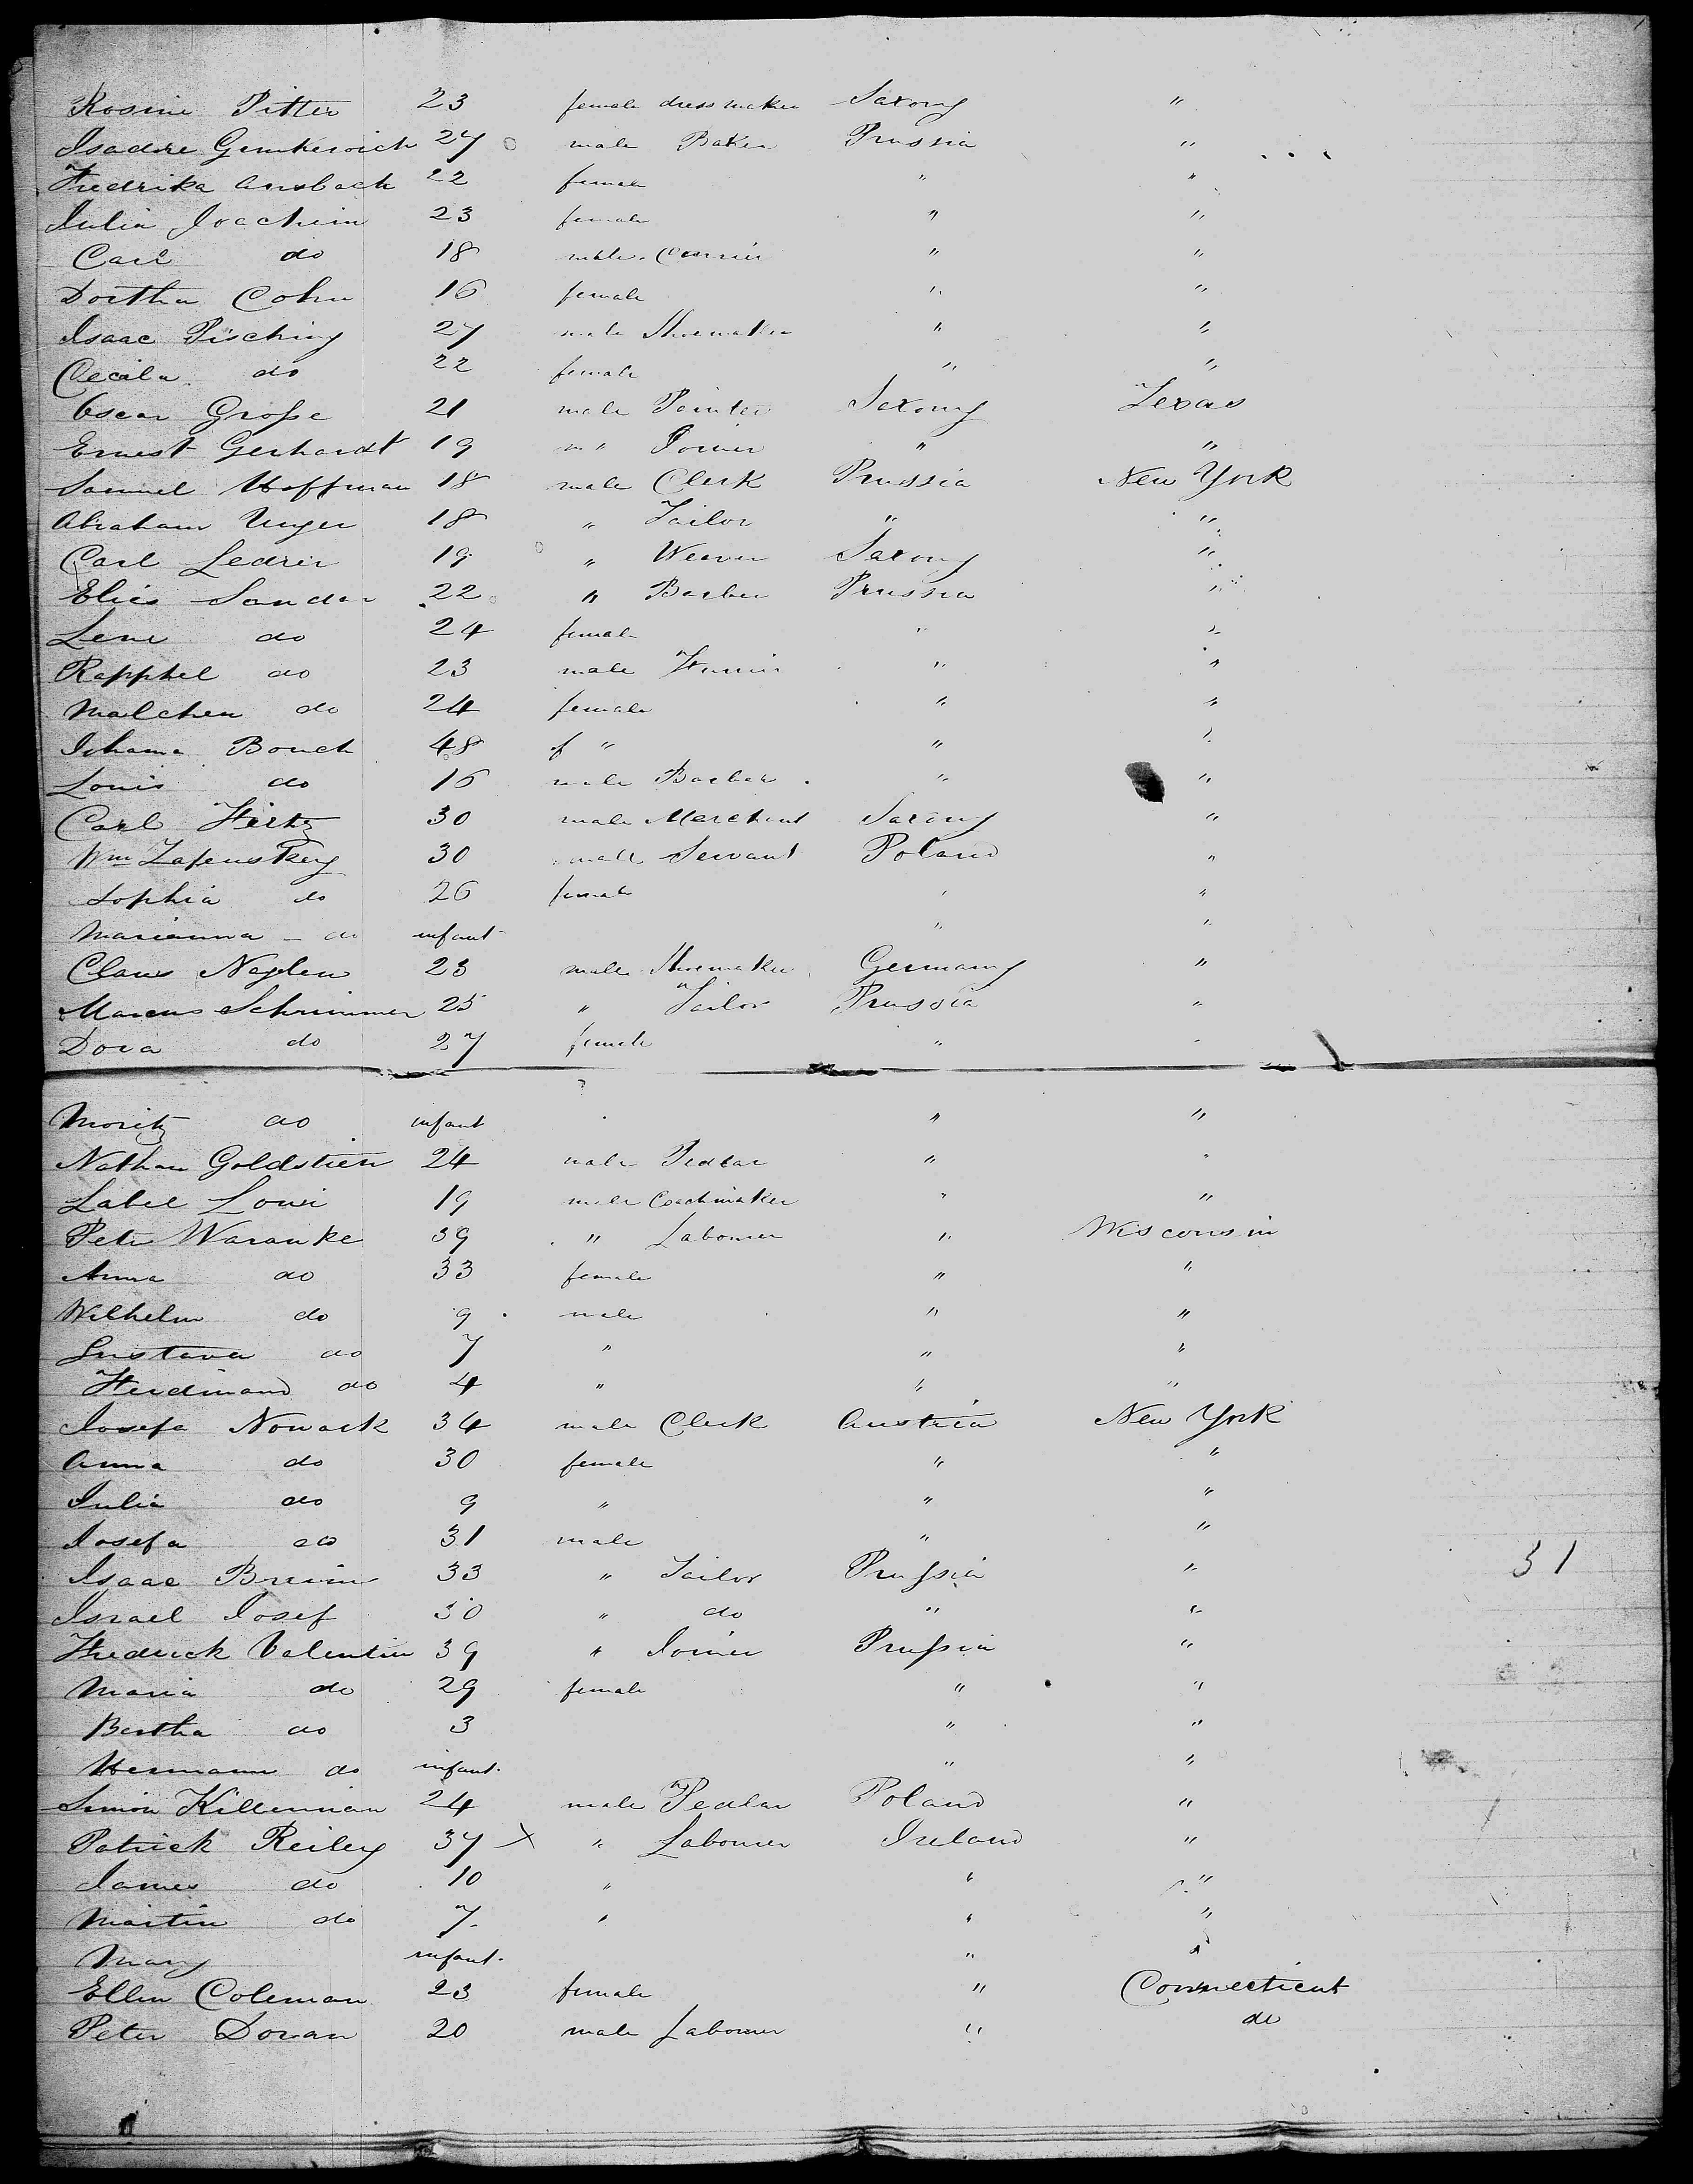 Rosine Pitter 23 female dress maker Saxony "
Isadore Gemkewich 27 male Baker Prussia "
Fredrika Ansbach 22 female " "
Julia Joachim 23 female " "
Carl do 18 male Currier " "
Dortha Cohn 16 female " "
Isaac Pisching 27 male Shoemaker " "
Cecila do 22 female " "
Oscar Große 21 male Painter Saxony Texas
Ernest Gerhardt 19 m " Joiner " "
Samuel Hoffman 18 male Clerk Prussia New York
Abraham Unger 18 " Tailor " "
Carl Ledrer 19 " Weaver Saxony "
Elies Sander 22 " Barber Prussia "
Lene do 24 female " "
Rapphel do 23 male " "
Malchen do 24 female " "
Johanna Bouch 48 f " " "
Louis do 16 male Barber " "
Carl Hertz 30 male Merchant Saxony "
Wm Zapenskey 30 male Servant Poland "
Sophia do 26 female " "
Marianna - do infant " "
Claus Naglen 23 male Shoemaker Germany "
Marcus Schrimmer 25 " Tailor Prussia "
Dora do 27 female " "
Moritz do infant " "
Nathan Goldstien 24 male Pedlar " "
Label Lowi 19 male Coachmaker " "
Peter Waranke 39 " Labourer " Wisconsin
Anna do 33 female " "
Wilhelm do 9 male " "
Gustava do 7 " " "
Ferdinand do 4 " " "
Josefa Nowack 34 male Clerk Austria New York
Anna do 30 female " "
Julia do 9 " " "
Josefa do 31 male " "
Isaac Brevin 33 " Tailor Prußia " 31
Israel Josef 30 " do " "
Fredrick Valentin 39 " Joiner Prußia "
Maria do 29 female " "
Bertha do 3 " "
Hermann do infant " "
Simon Killerman 24 male Pedlar Poland "
Patrick Reiley 37 X " Labourer Ireland "
James do 10 " " "
Martin do 7 " " "
Mary infant " "
Ellen Coleman 23 female " Connecticut
Peter Doran 20 male Labourer " do